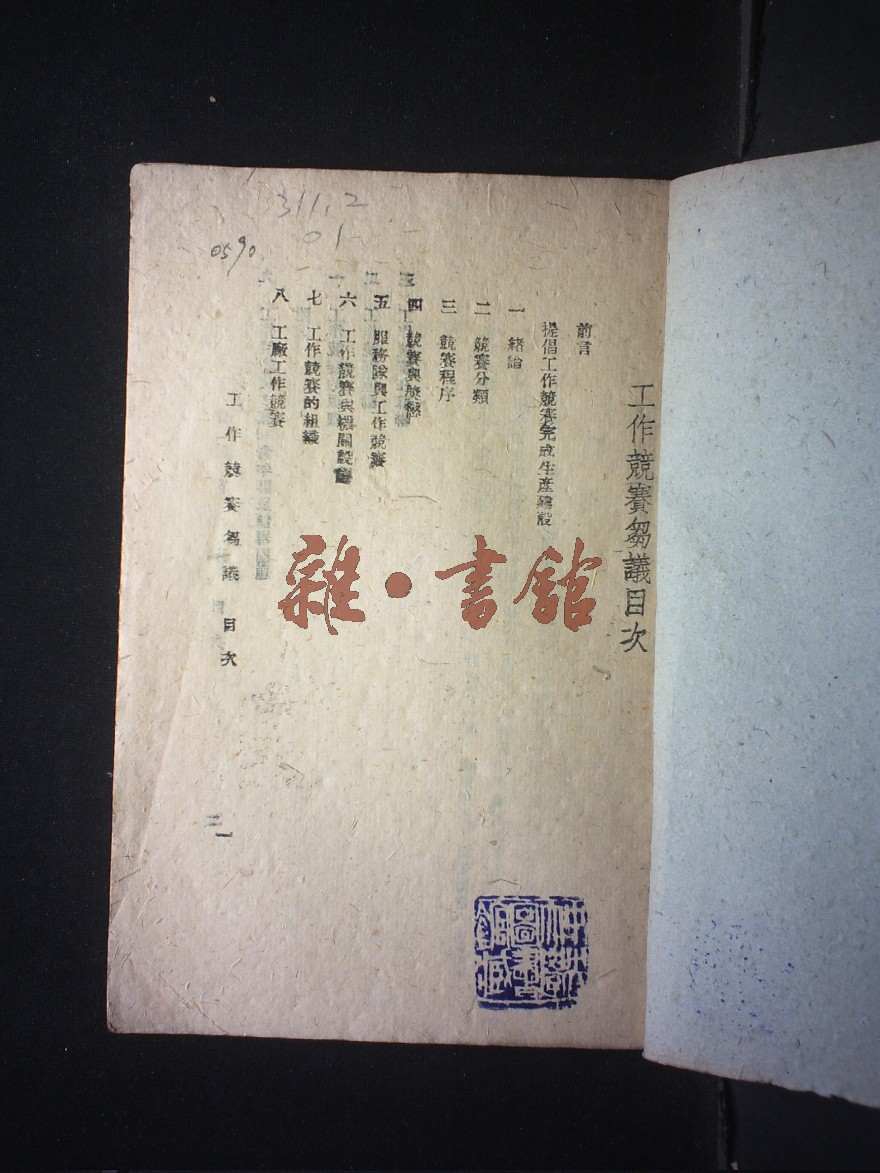 311.2
01
0590
工作競賽芻議目次
前言
提倡工作競賽完成生產建設
一 緒論
二 競賽分類
三 競賽程序
四 競賽與獎懲
五 服務隊與工作競賽
六 工作競賽與機關設施
七 工作競賽的組織
八 工廠工作競賽
工作競賽芻議 目次
一
雜·書館
圖書